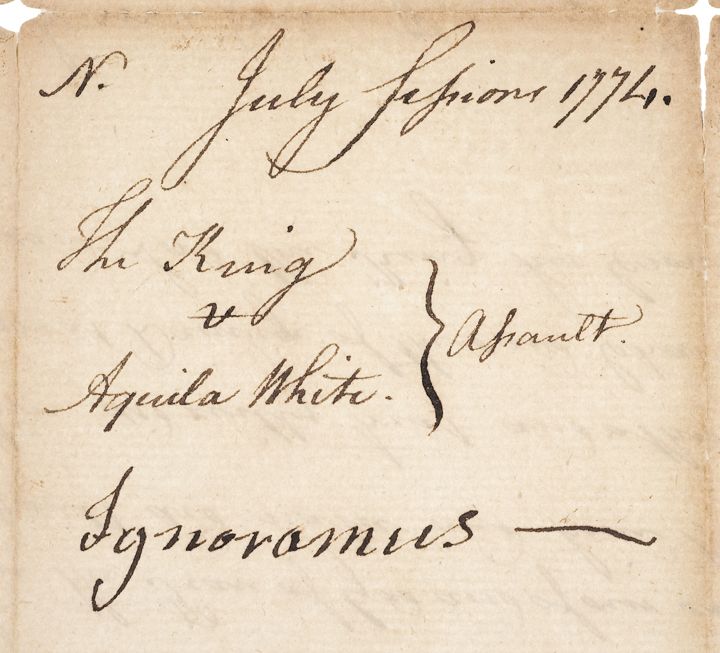 N. July Sessions 1774.
The King
v
Aquila White.
} Assault.
Ignoramus —